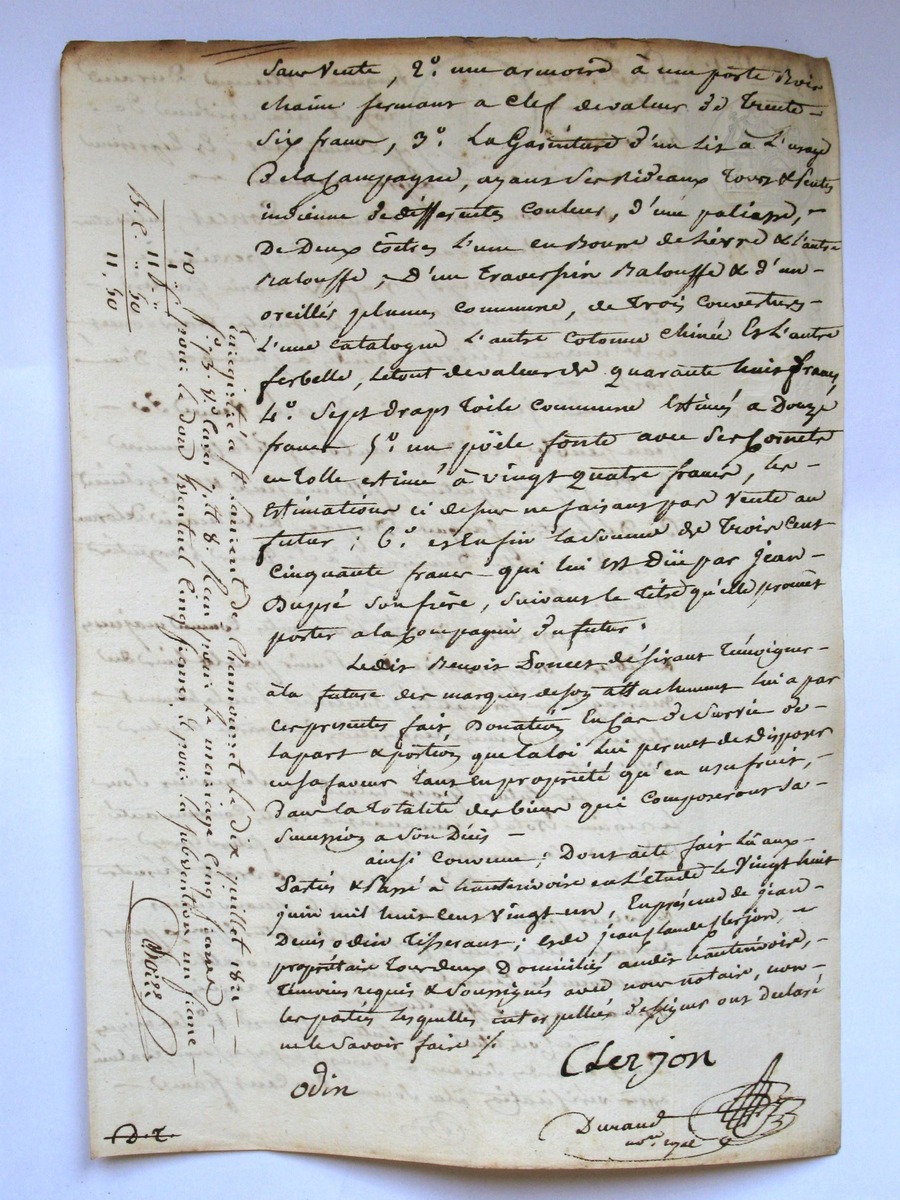 sans vente, 2º. une armoire à une porte Bois
chaine fermant a clef de valeur de Trente
six francs, 3º. La Garniture d'un Lit à l'usage
de la Campagne, ayant Ses Rideaux
indienne de differentes couleurs, d'une paliasse,
De Deux L'une en Bourre de Lievre & l'autre
Balouffe, D'un Traversein Balouffe & d'un
oreillés plumes commune, de Trois couvertures
L'une catalogne L'autre cotonne chinée Et L'autre
ferbelle, Le tout de valeur de quarante huit francs,
4º. Sept draps Toile commune Estimés a Douze
francs 5º. un pöele fonte avec Ses Cornets
en Tolle estimé à vingt quatre francs, les
Estimations ci dessus ne faisant pas vente au
futur; 6º. et Enfin la Somme de Trois cent
Cinquante francs qui lui est düe par jean
Dupré son frère, suivant le Titre qu'elle promet
porter a la Compagnie du futur.
Ledit Benoit Doncet desirant Témoigner
à la future des marques de son attachement lui a par
ces presentes fait Donation En Cas de Survie de
la part & portion que la loi lui permet de disposer
en sa faveur tant en propriété qu'en usufruit,
dans la Totalité des biens qui Composeront Sa
Succession a Son Décès
ainsi Convenu; Dont acte fait Lû aux
Parties & Passé à hauterivoire en L'étude le Vingt huit
juin mil huit cent Vingt un, En présence de jean
Denis odin Tisserant; et de jean Claude Clerjon,
propriétaire tous deux Domiciliés audit hauterivoire,
Témoins requis & Soussignés avec nous notaire, non
les parties lesquelles interpellées de signer ont declaré
ne le savoir faire
Clerjon
odin
Durand
nore royal
D. T.
Enregistré à st Laurent de Chamousset le dix juillet 1821
fº. 73. Rº. Cases 7 et 8. Reçu pour le mariage cinq francs
pour le don Eventuel Cinq francs, & pour la subvention un franc
10
1
11
50
11. 50